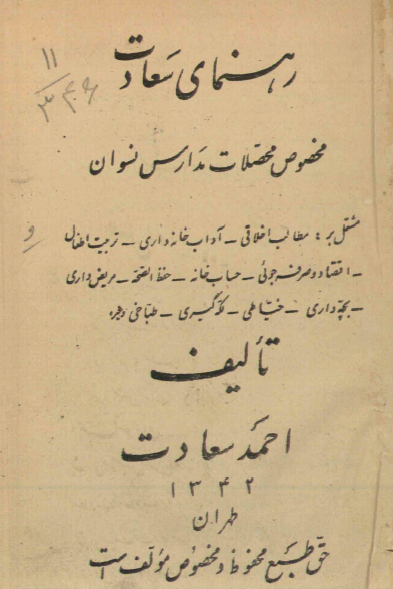 رهنمای سعادت
مخصوص محصّلات مدارس نسوان
مشتمل بر: مطالب اخلاقی – آداب خانه داری – تربیت اطفال
– اقتصاد و صرفه جوئی – حساب خانه – حفظ الصّحّه – مریض داری
– بچّه داری – خیّاطی – لکّه گیری – طبّاخی و غیره
تألیف
احمد سعادت
۱۳۴۲
طهران
حقّ طبع محفوظ و مخصوص مؤلّف است
۱۱